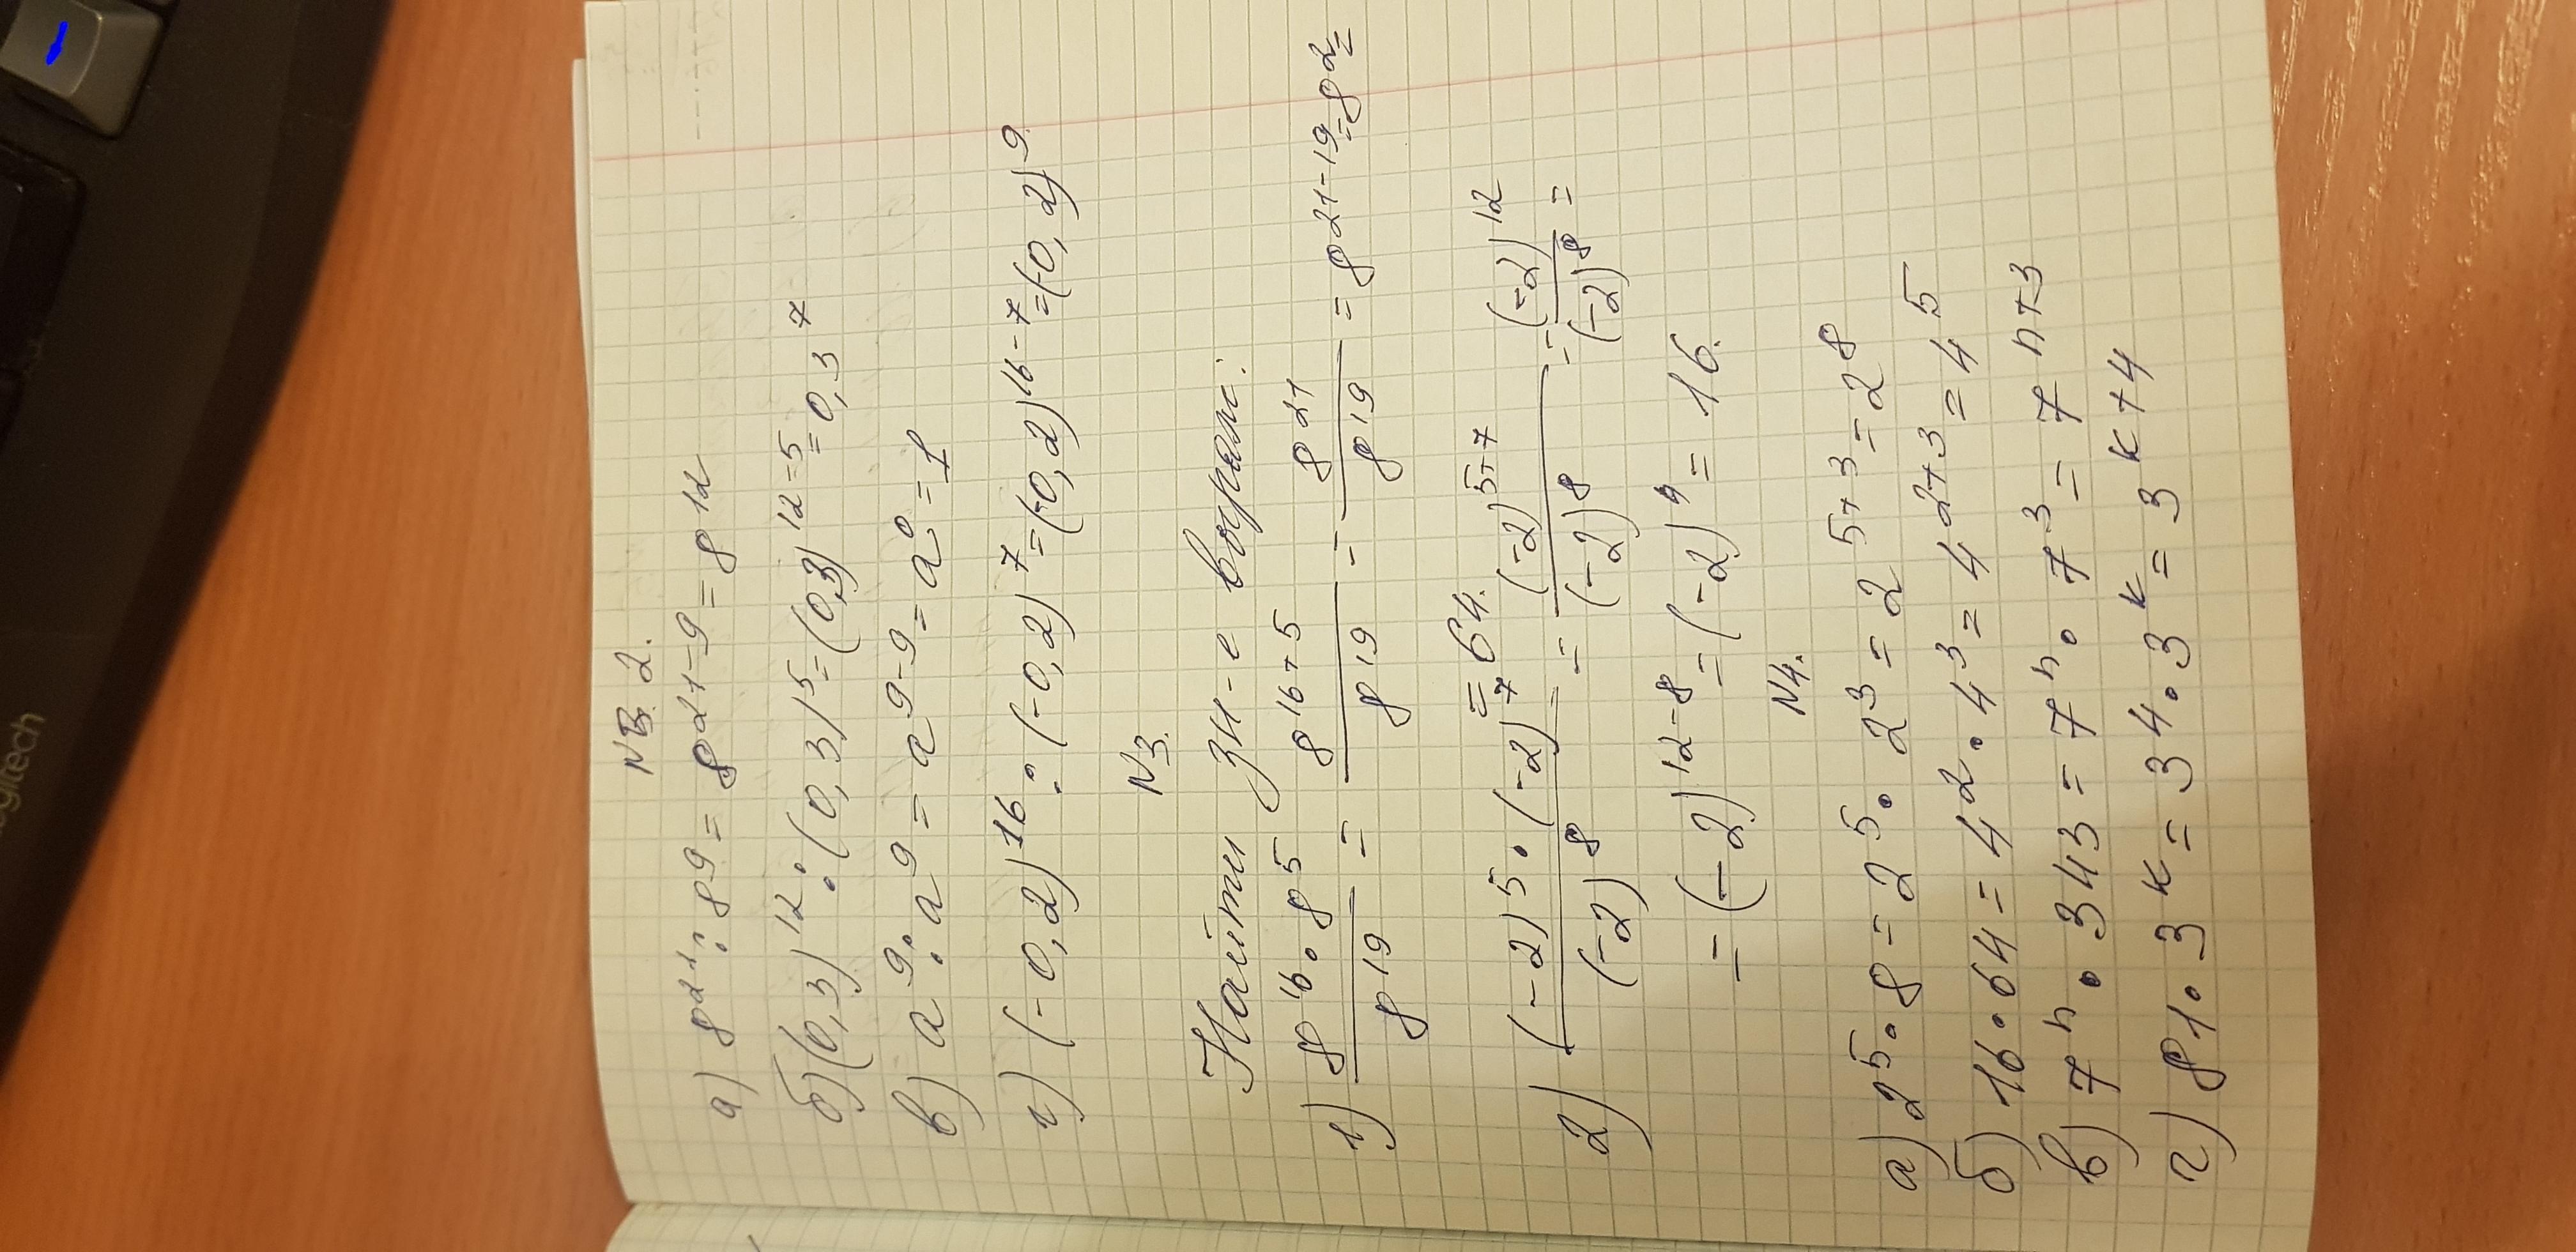 N 2.
а) 8^21 : 8^9 = 8^21-9 = 8^12
б) (0,3)^12 : (0,3)^5 = (0,3)^12-5 = 0,3^7
в) a^9 : a^9 = a^9-9 = a^0 = 1
г) (-0,2)^16 : (-0,2)^7 = (-0,2)^16-7 = (-0,2)^9
N3.
Найти зн-е выраж:
1) 8^16 · 8^5 / 8^19 = 8^16+5 / 8^19 = 8^21 / 8^19 = 8^21-19 = 8^2 =
= 64.
2) (-2)^5 · (-2)^7 / (-2)^8 = (-2)^5+7 / (-2)^8 = (-2)^12 / (-2)^8 =
= (-2)^12-8 = (-2)^4 = 16.
N4.
а) 2^5 · 8 = 2^5 · 2^3 = 2^5+3 = 2^8
б) 16 · 64 = 4^2 · 4^3 = 4^2+3 = 4^5
в) 7^n · 343 = 7^n · 7^3 = 7^n+3
г) 81 · 3^k = 3^4 · 3^k = 3^k+4